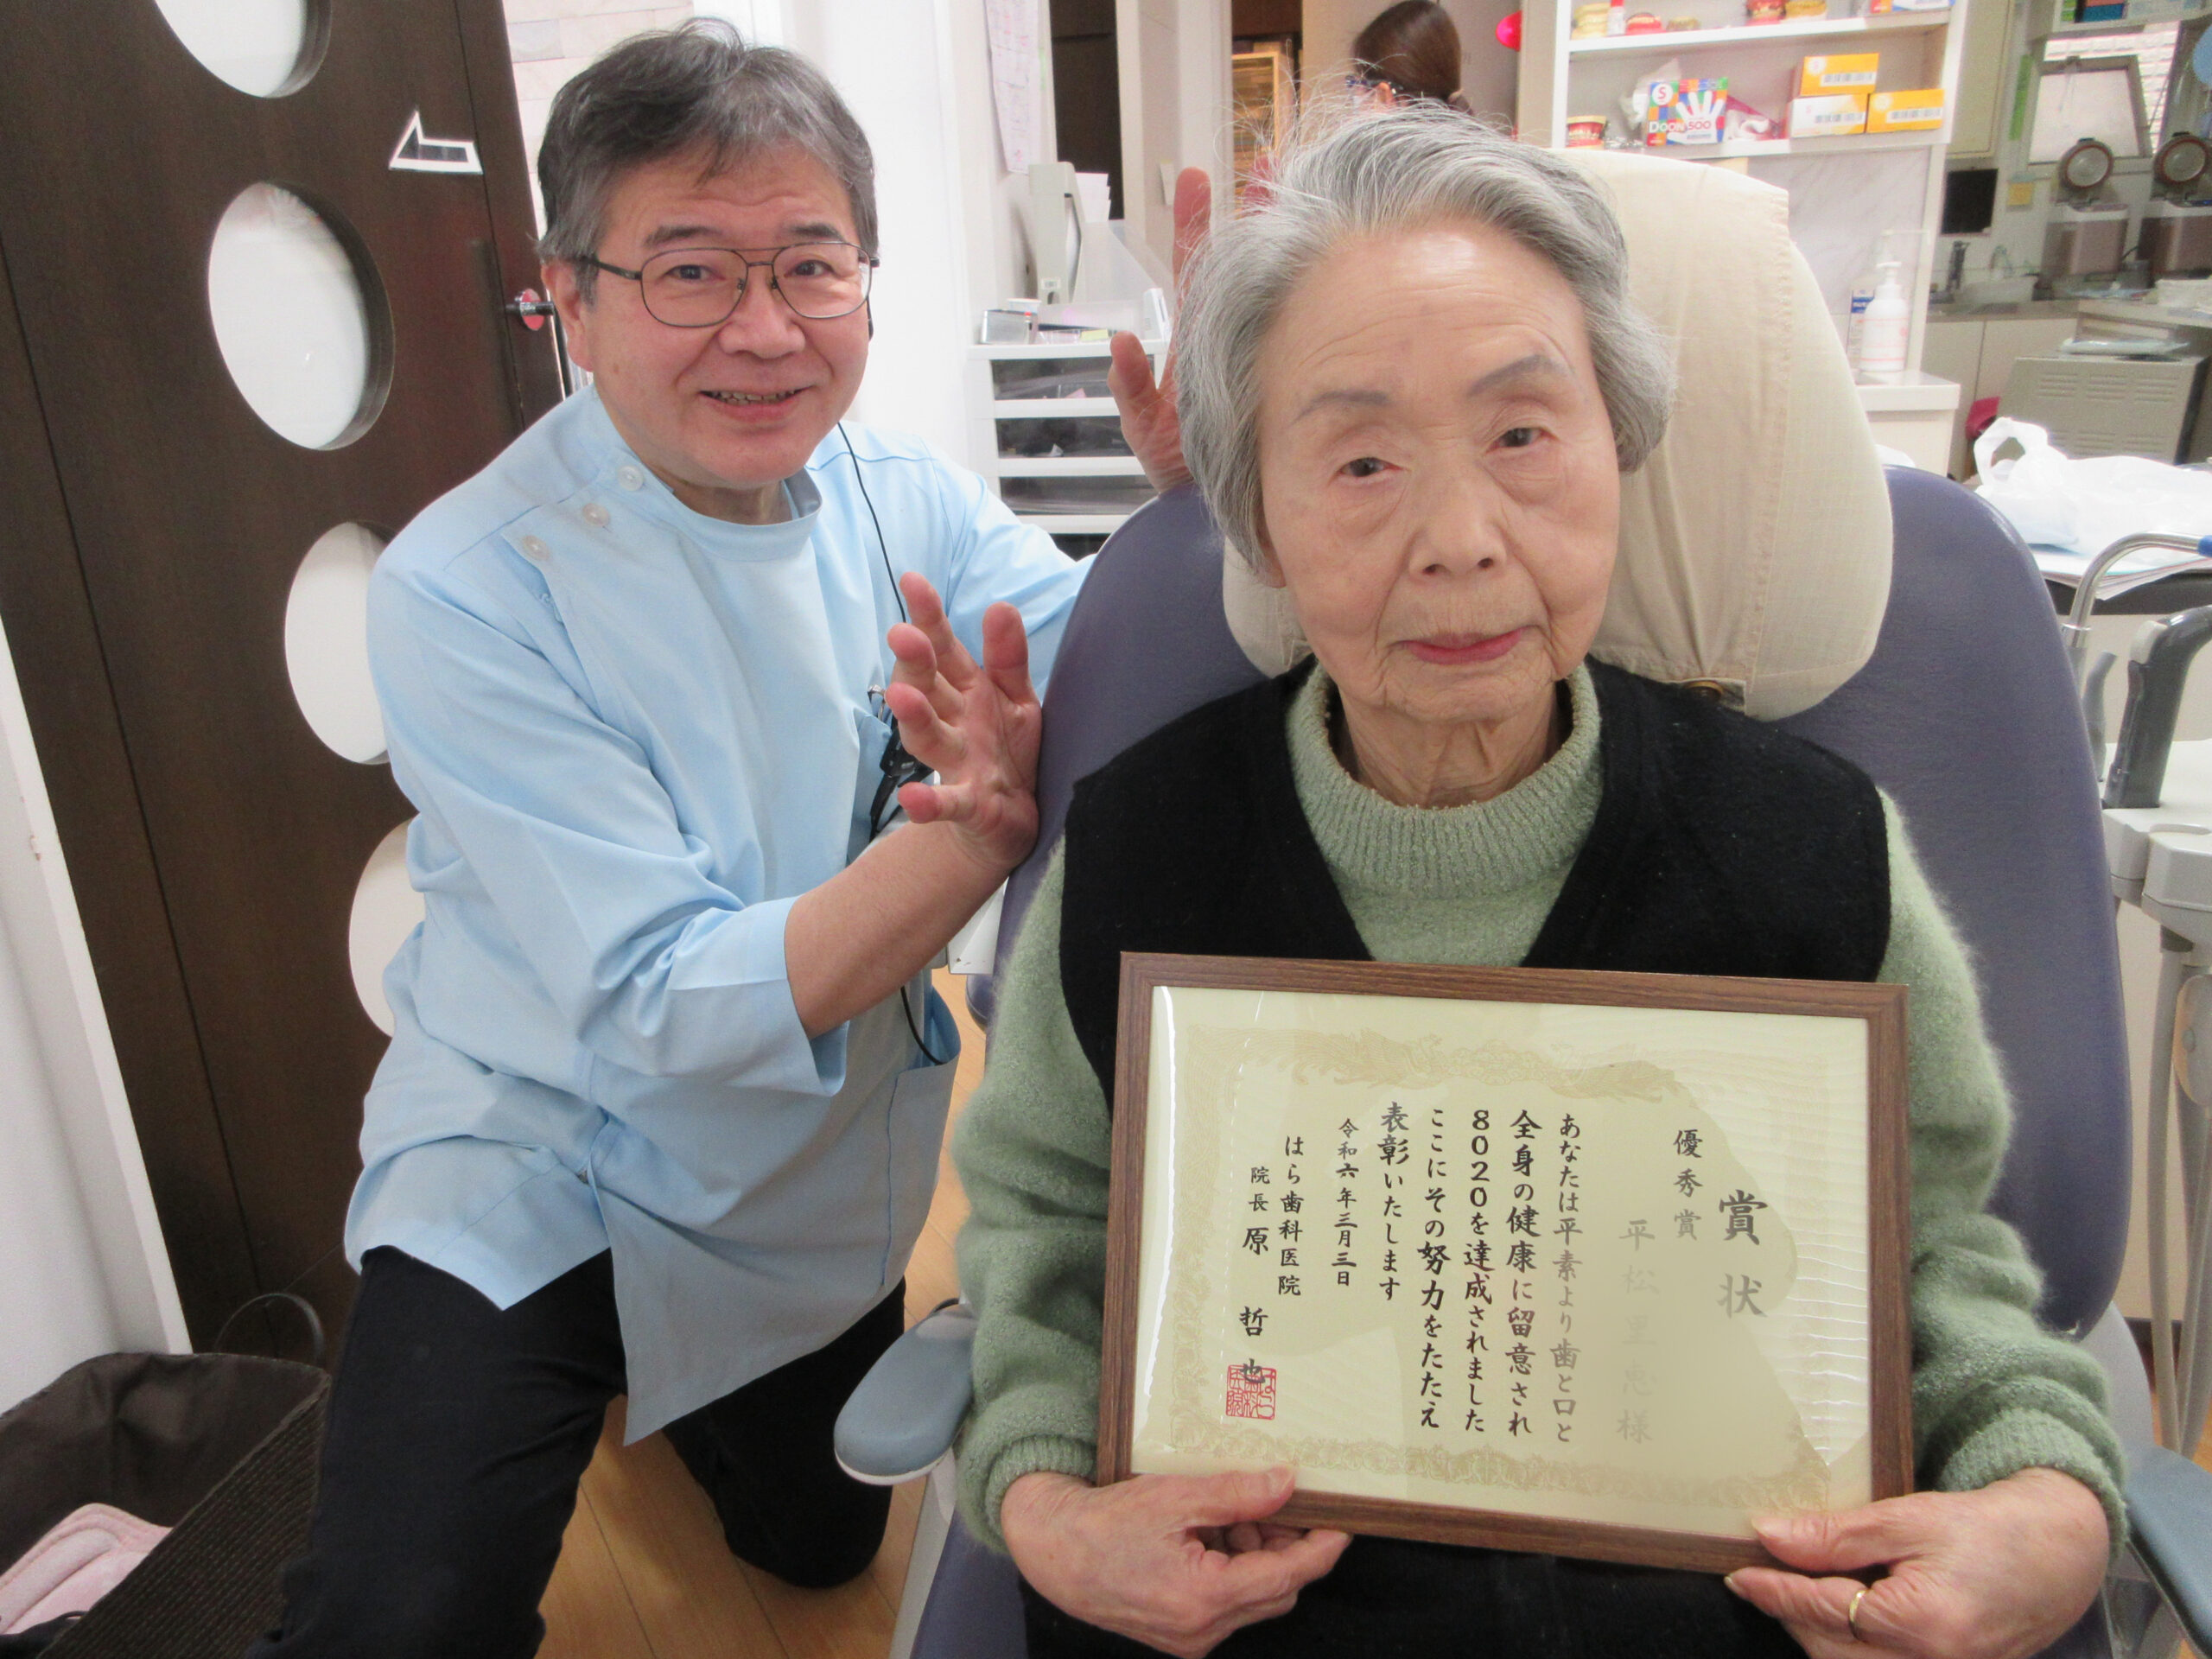 賞状
優秀賞
平松
恵様
あなたは平素より歯と口と
全身の健康に留意され
8020を達成されました
ここにその努力をたたえ
表彰いたします
令和六年三月三日
はら歯科医院
院長 原 哲也
S
DOON 500